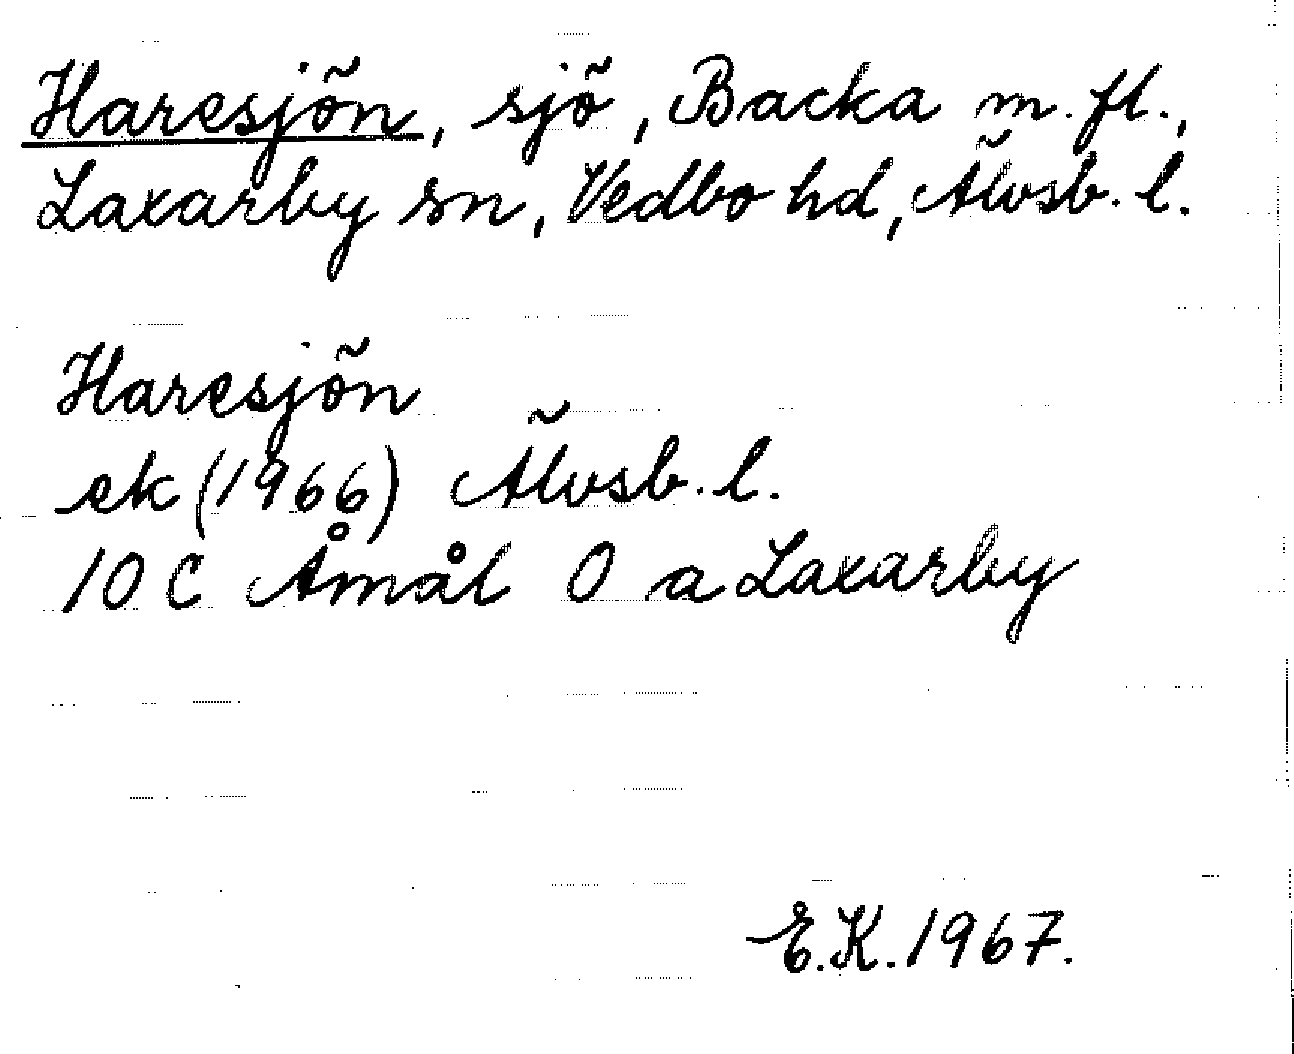 Haresjön, sjö, Backa m. fl.,
Laxarby sn, Vedbo hd, Älvsb. l.
Haresjön
ek (1966) Älvsb. l.
10 C Åmål O a Laxarby
E.K. 1967.